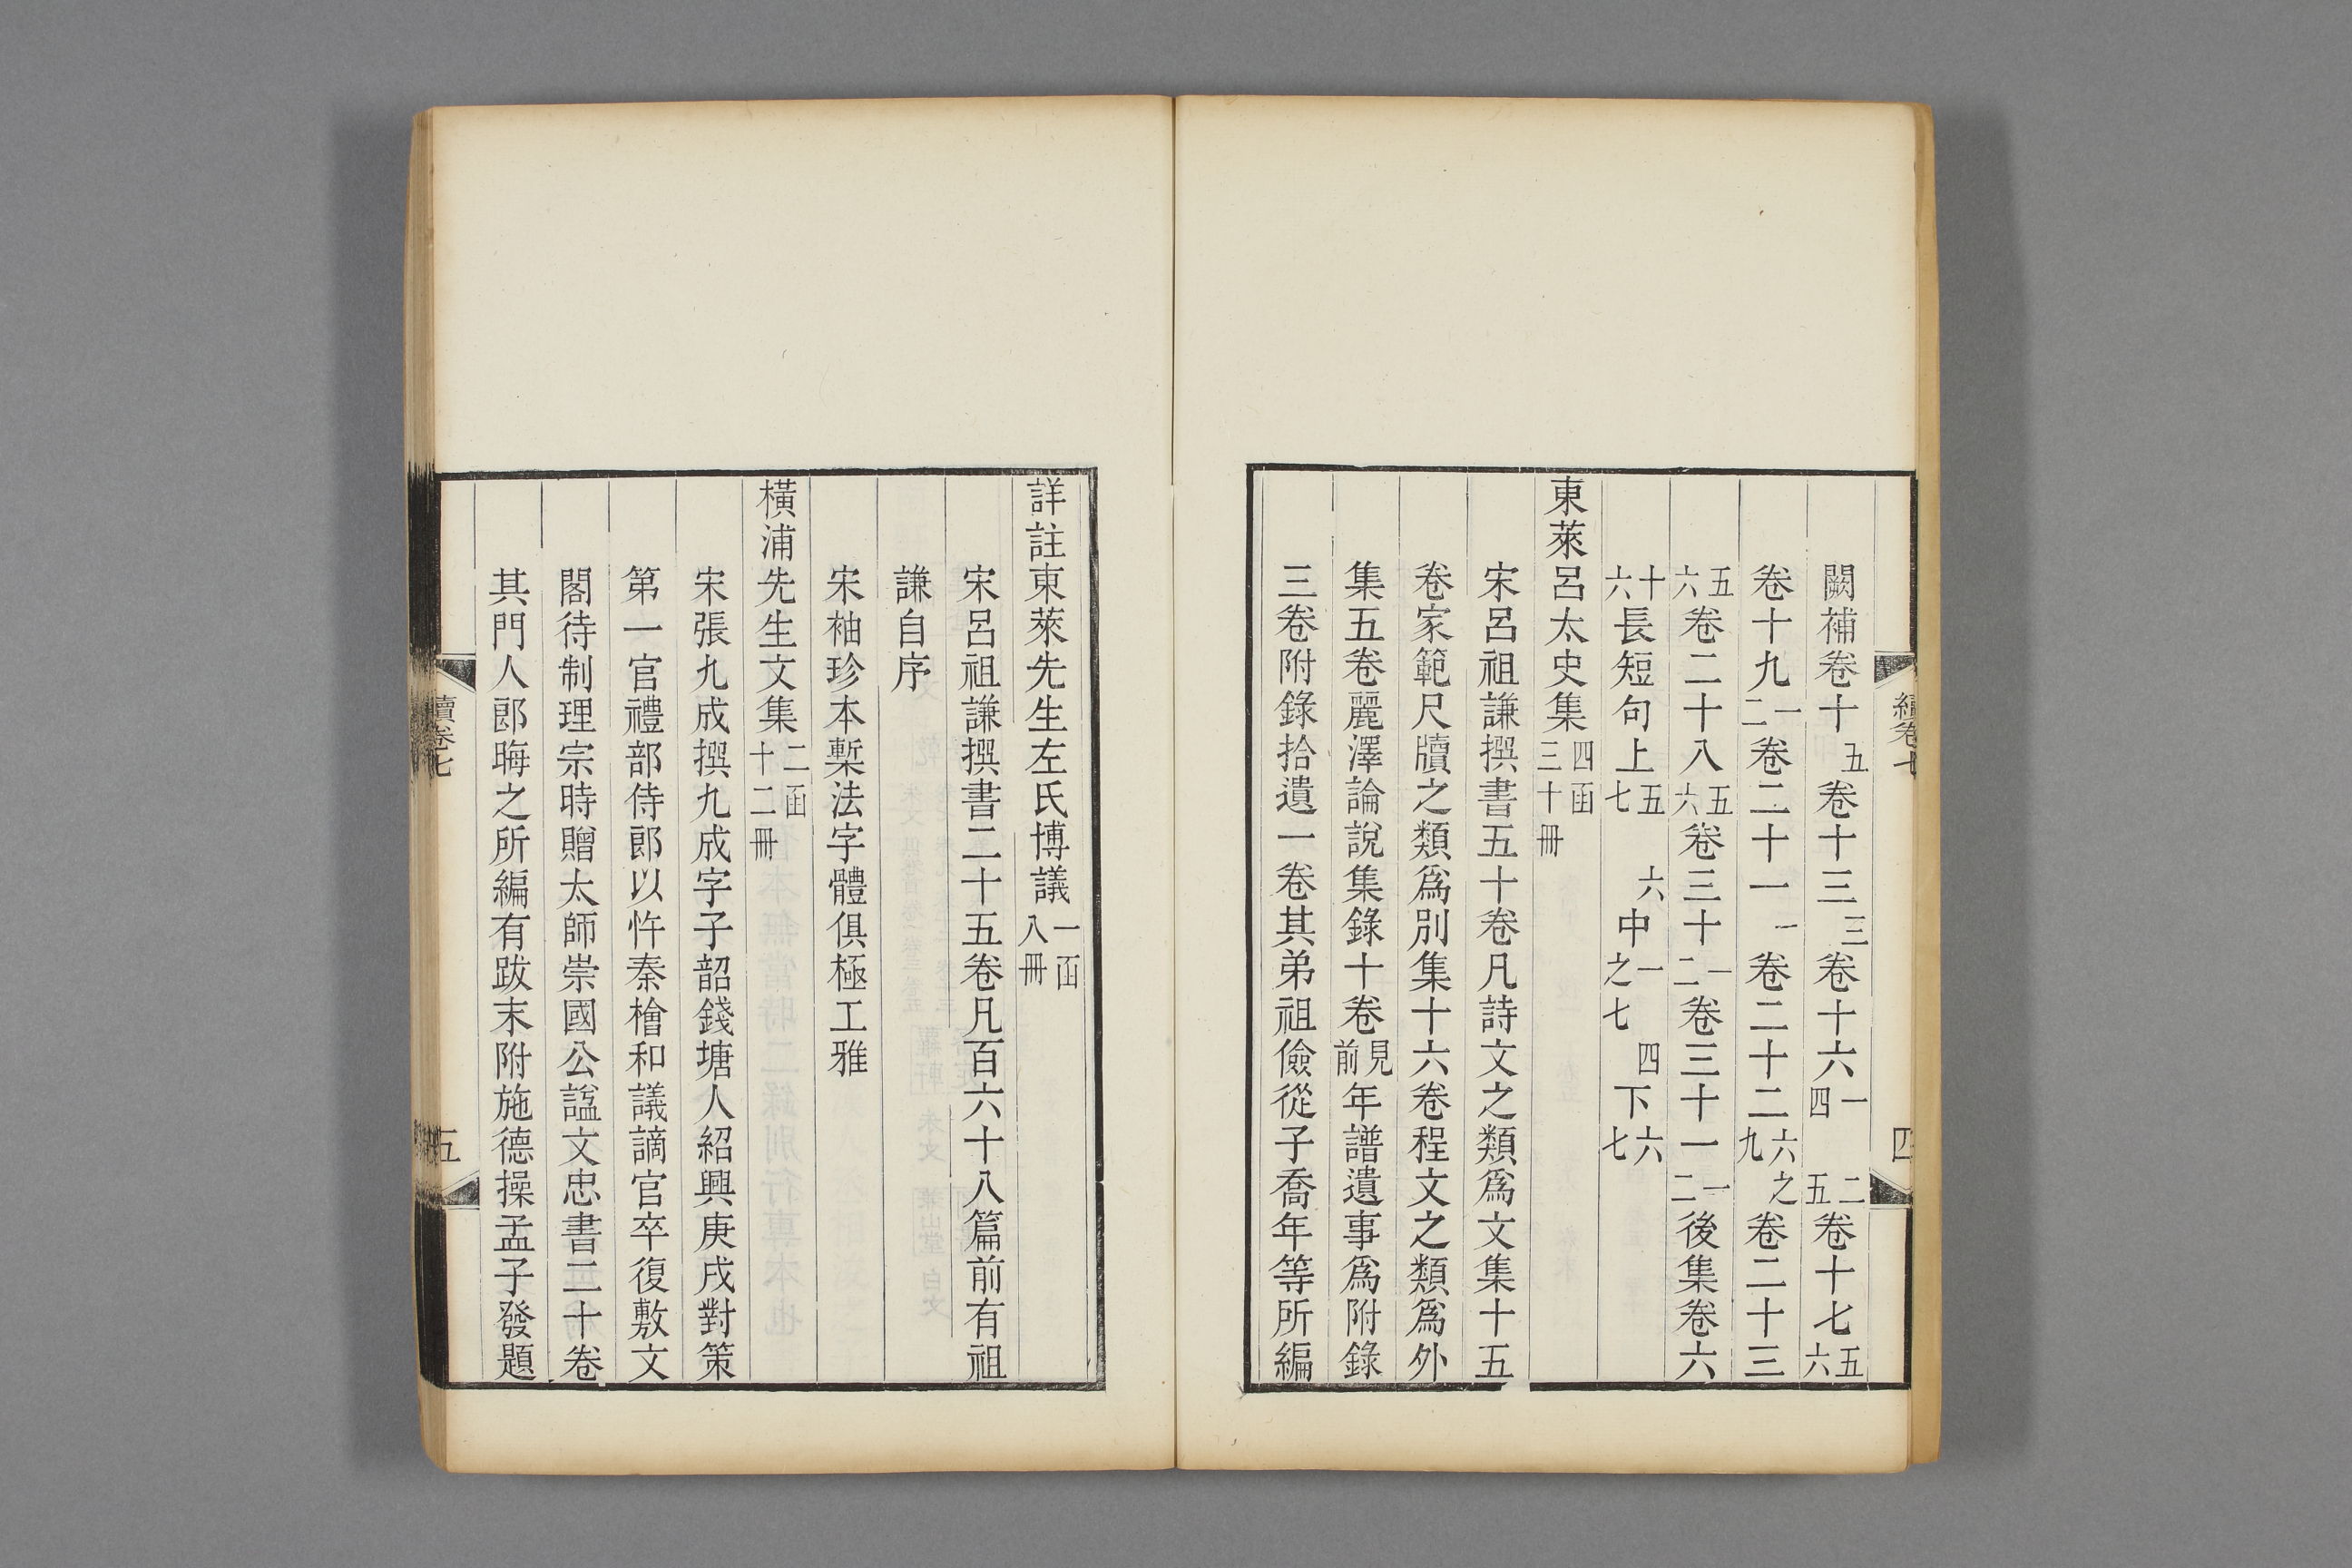 闕補卷十五卷十三三卷十六一四二五卷十七五六
卷十九一二卷二十一一卷二十二六九之卷二十三
五六卷二十八五六卷三十一二卷三十一一二後集卷六
十六長短句上五七六中一之七四下六七
東萊呂太史集四函三十冊
宋呂祖謙撰書五十卷凡詩文之類爲文集十五
卷家範尺牘之類爲別集十六卷程文之類爲外
集五卷麗澤論說集錄十卷見前年譜遺事爲附錄
三卷附錄拾遺一卷其弟祖儉從子喬年等所編
續卷七
四
詳註東萊先生左氏博議一函八冊
宋呂祖謙撰書二十五卷凡百六十八篇前有祖
謙自序
宋袖珍本槧法字體俱極工雅
橫浦先生文集二函十二冊
宋張九成撰九成字子韶錢塘人紹興庚戌對策
第一官禮部侍郎以忤秦檜和議謫官卒復敷文
閣待制理宗時贈太師崇國公諡文忠書二十卷
其門人郎晦之所編有跋末附施德操孟子發題
續卷七
五